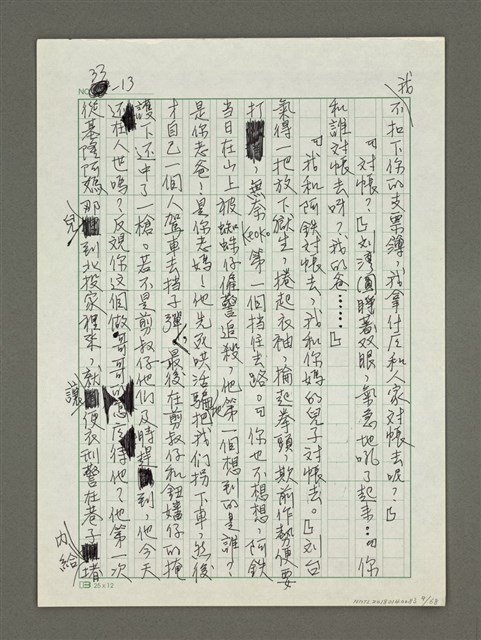 NO. 33-13
我不扣下你的支票簿，我拿什麼和人家對帳去呢？」
「對帳？」劉湾圓睜著双眼，氣急地吼了起來：「你
和誰對帳去呀？我的爸……」
「我和阿鉄對帳去，我和你媽的兒子對帳去。」刘台
氣得一把放下獄生，捲起衣袖，掄起拳頭，欺前作勢便要
打，無奈Keoko第一個挡住去路。「你也不想想，阿鉄
當日在山上被蜘蛛仔催警追殺，他第一個想到的是誰？
是你老爸！是你老媽！他先改哄活騙地把我们拐下車，然後
才自己一個人駕車去挡子彈，最後在剪叔仔和鈕嬸仔的掩
護下还中了一槍。若不是剪叔仔他们及時趕到，他今天
还在人世嗎？反觀你这個做哥哥的怎麼待他？他第一次
從基隆阿媽那兒到北投家裡來，就讓便衣刑警在巷子內給堵
25x12